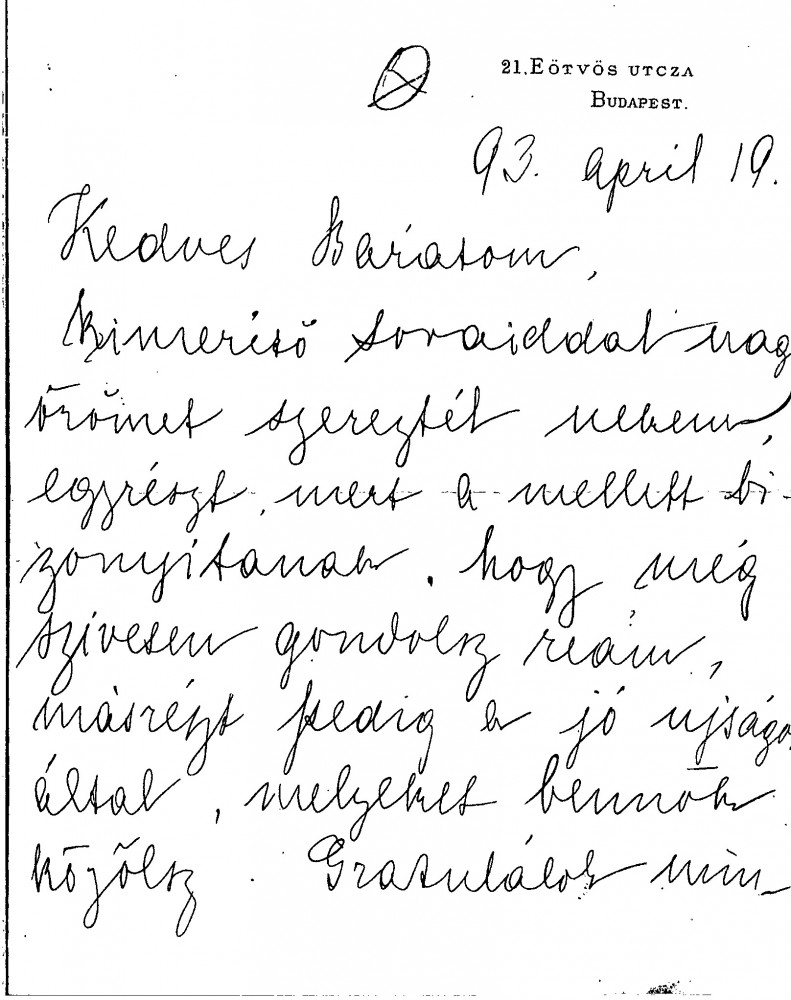 21. EÖTVÖS UTCZA
BUDAPEST.
93. April 19.
Kedves Barátom,
Kimerítő soraiddal nagy
örömet szereztél nekem,
egyrészt, mert a mellett bi-
zonyítanak, hogy még
szívesen gondolsz reám,
másrészt pedig a jó ujságo
által, melyeket bennök
közölsz. Gratulálok min-